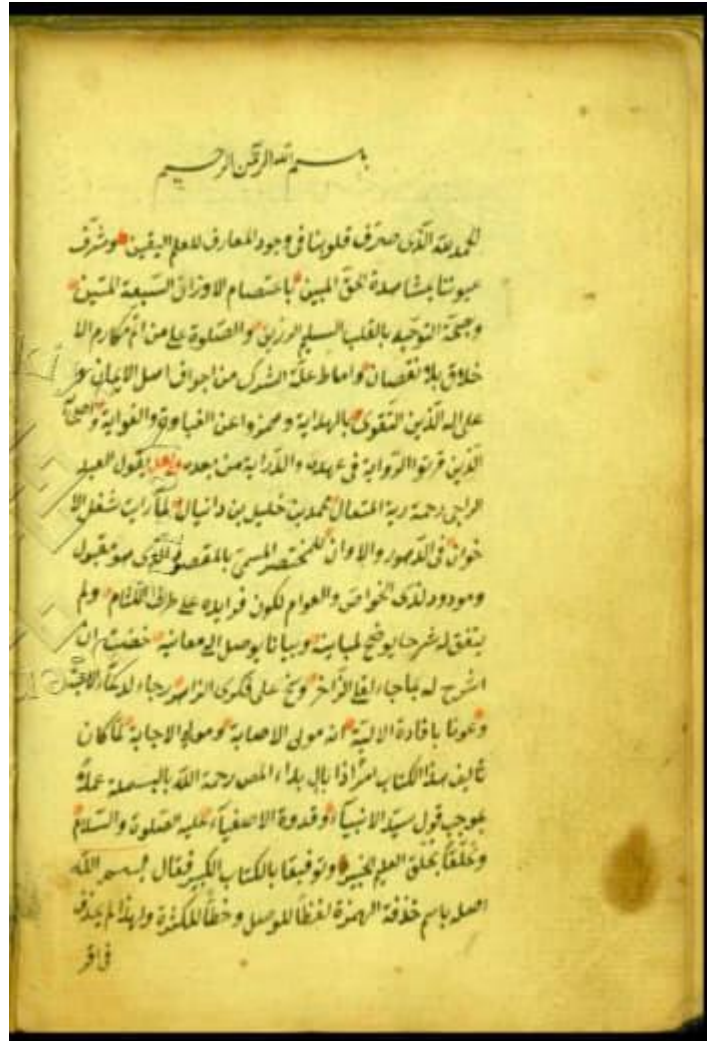 بسم الله الرحمن الرحيم
الحمد لله الذى صرف قلوبنا فى وجود المعارف للعلم اليقين وشرف
عيوننا بمشاهدة الحق المبين باعتصام الاوراق السبعة المتين
وصحة التوحيد بالقلب السليم الرزين والصلوة على من اتم مكارم الا
خلاق بلا نقصان واماط علة الشرك من اجواف اصل الايمان و
على اله الذين التقوى بالهداية وعن الغباوة والغواية
الذين قرنوا الرواية فى عهده والدراية من بعده يقول العبد
الراجى رحمة ربه المتعال محمد بن خليل بن دانيال لما رايت شغل الا
خوان فى الدهور والاوان للمختصر المسمى بالمقصود الذى هو مقبول
ومودود لدى الخواص والعوام لكون فوايده على طرف الثمام ولم
يتفق له شرحا يوضح لمبانيه وبيانا يوصل الى معانيه ان
اشرح له على فكرى رجاء لدعاء
وعونا بافادة انه مولى الاصابة الاجابة لما كان
تاليف هذا الكتاب امرا ذا بال بداء المص رحمة الله بالبسملة عملا
بموجب قول سيد الانبياء وقدوة الاصفياء عليه الصلوة والسلام
وتخلقا بخلق العليم الخبير وتوفيقا بالكتاب الكبير فقال بسم الله
اصله باسم حذفت الهمزة لفظا للوصل وخطا للكثرة ولهذا لم يحذف
فى اقر